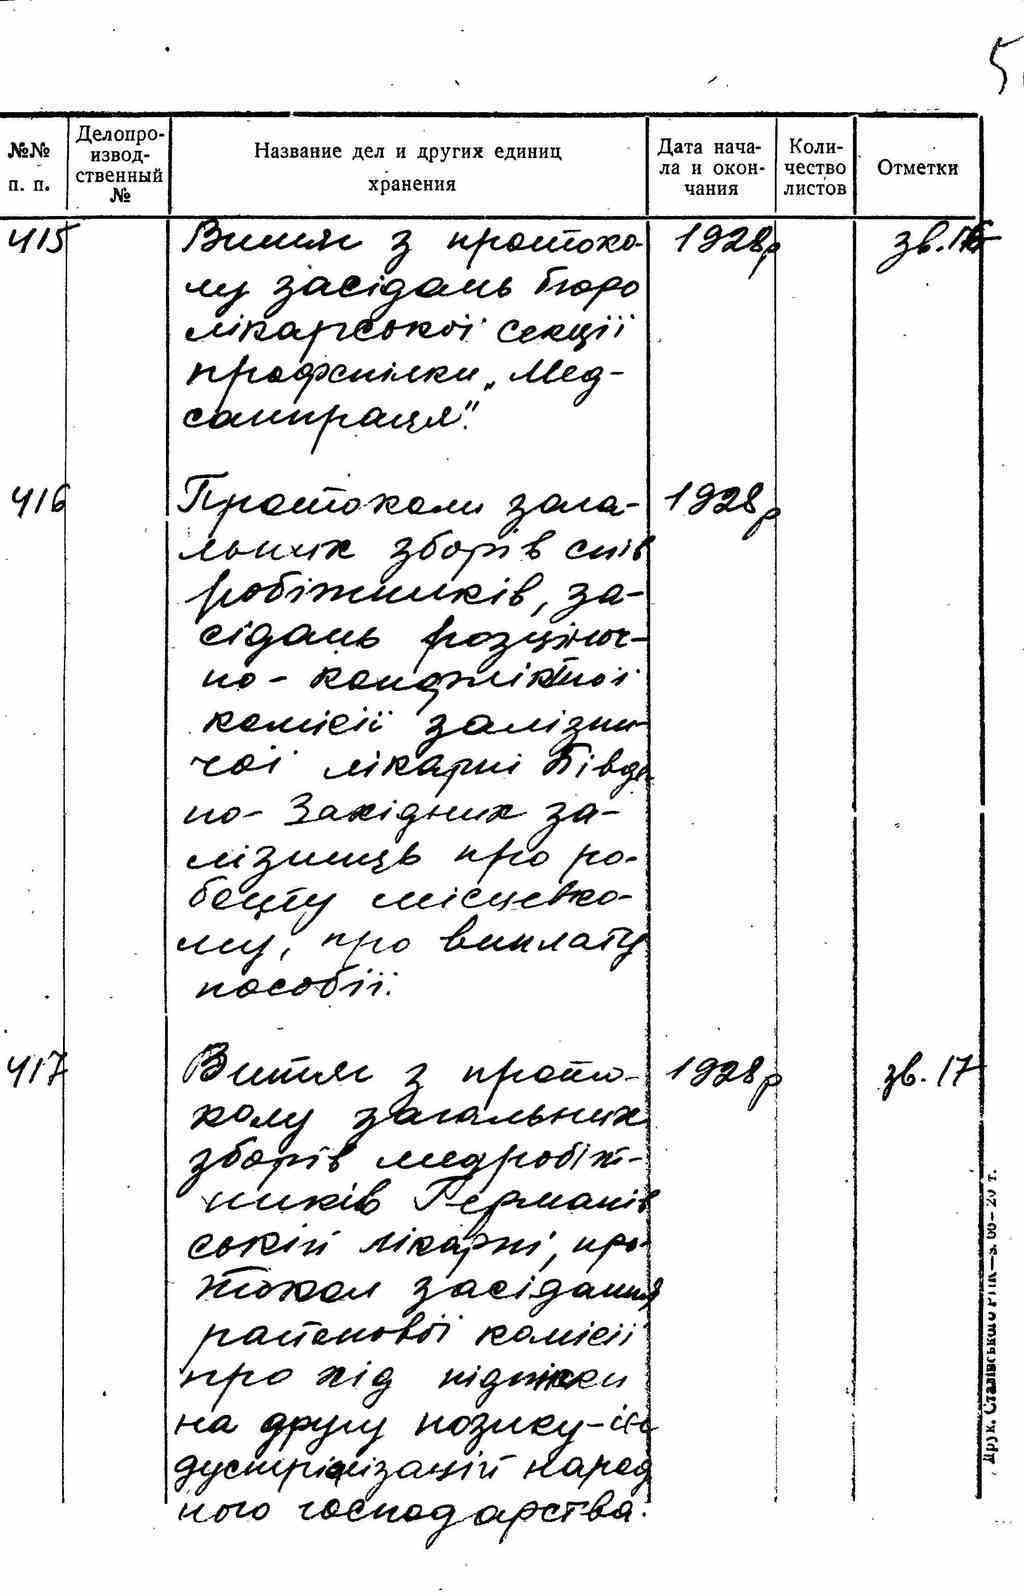 5
№№ п. п.
Делопро-
извод-
ственный
№
Название дел и других единиц
хранения
Дата нача-
ла и окон-
чания
Коли-
чество
листов
Отметки
415 Витяг з протоко- 1928р зв. 16
лу засідань бюро
лікарської секції
профспілки „Мед-
санпраця".
416 Протоколи зага- 1928р
льних зборів спів
робітників, за-
сідань розціноч-
но-конфліктної
комісії залізни-
чої лікарні Півде
но-Західних за-
лізниць про ро-
боту місцевко-
му, про виплату
пособії.
417 Витяг з прото- 1928р зв. 17
колу загальних
зборів медробіт-
ників Германів
ській лікарні, про-
токол засідання
районової комісії
про хід підписки
на другу позику-ін
дустріалізацій народ
ного господарства.
Друк. Сталінського РПК—з. 66— 20 т.